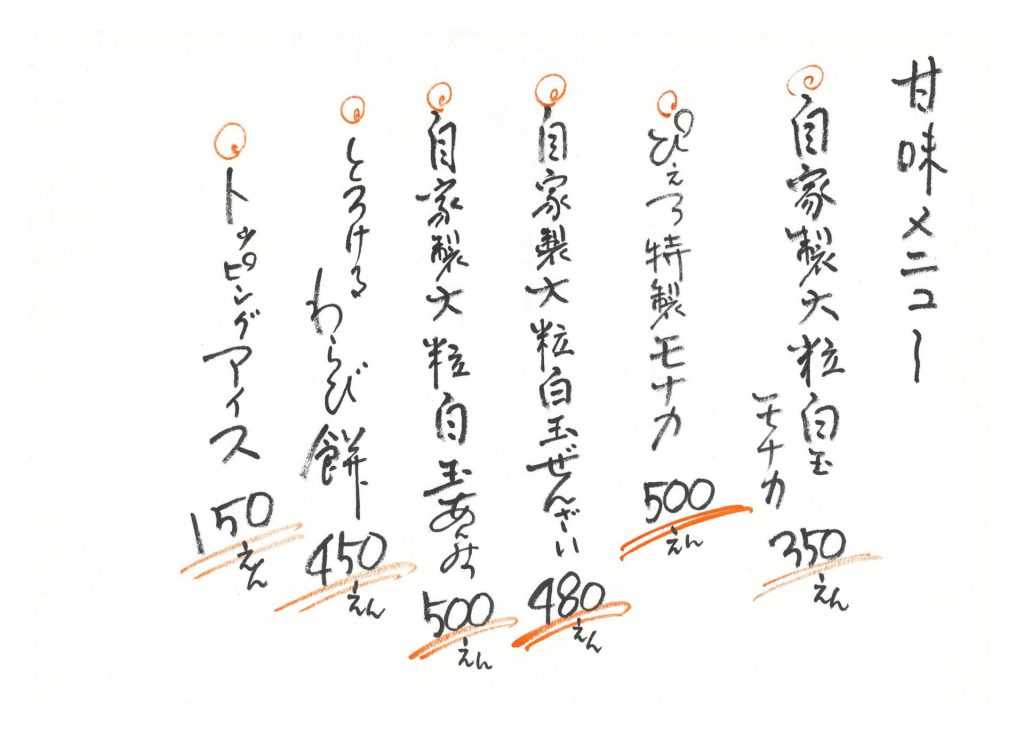 甘味メニュー
自家製大粒白玉
モナカ
350えん
ぴえろ特製モナカ
500えん
自家製大粒白玉ぜんざい
480えん
自家製大粒白玉あんみつ
500えん
とろける
わらび餅
450えん
トッピングアイス
150えん